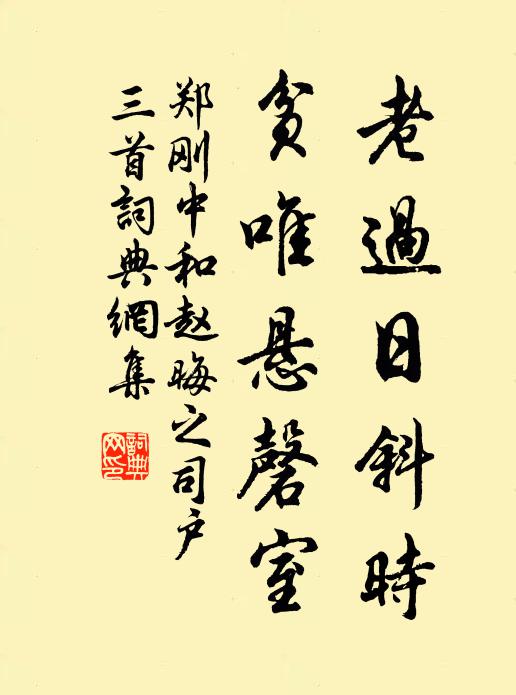 老過日斜時
貧唯悬磬室
郑刚中和赵晦之司户
三首詞典網集
詞典
网印